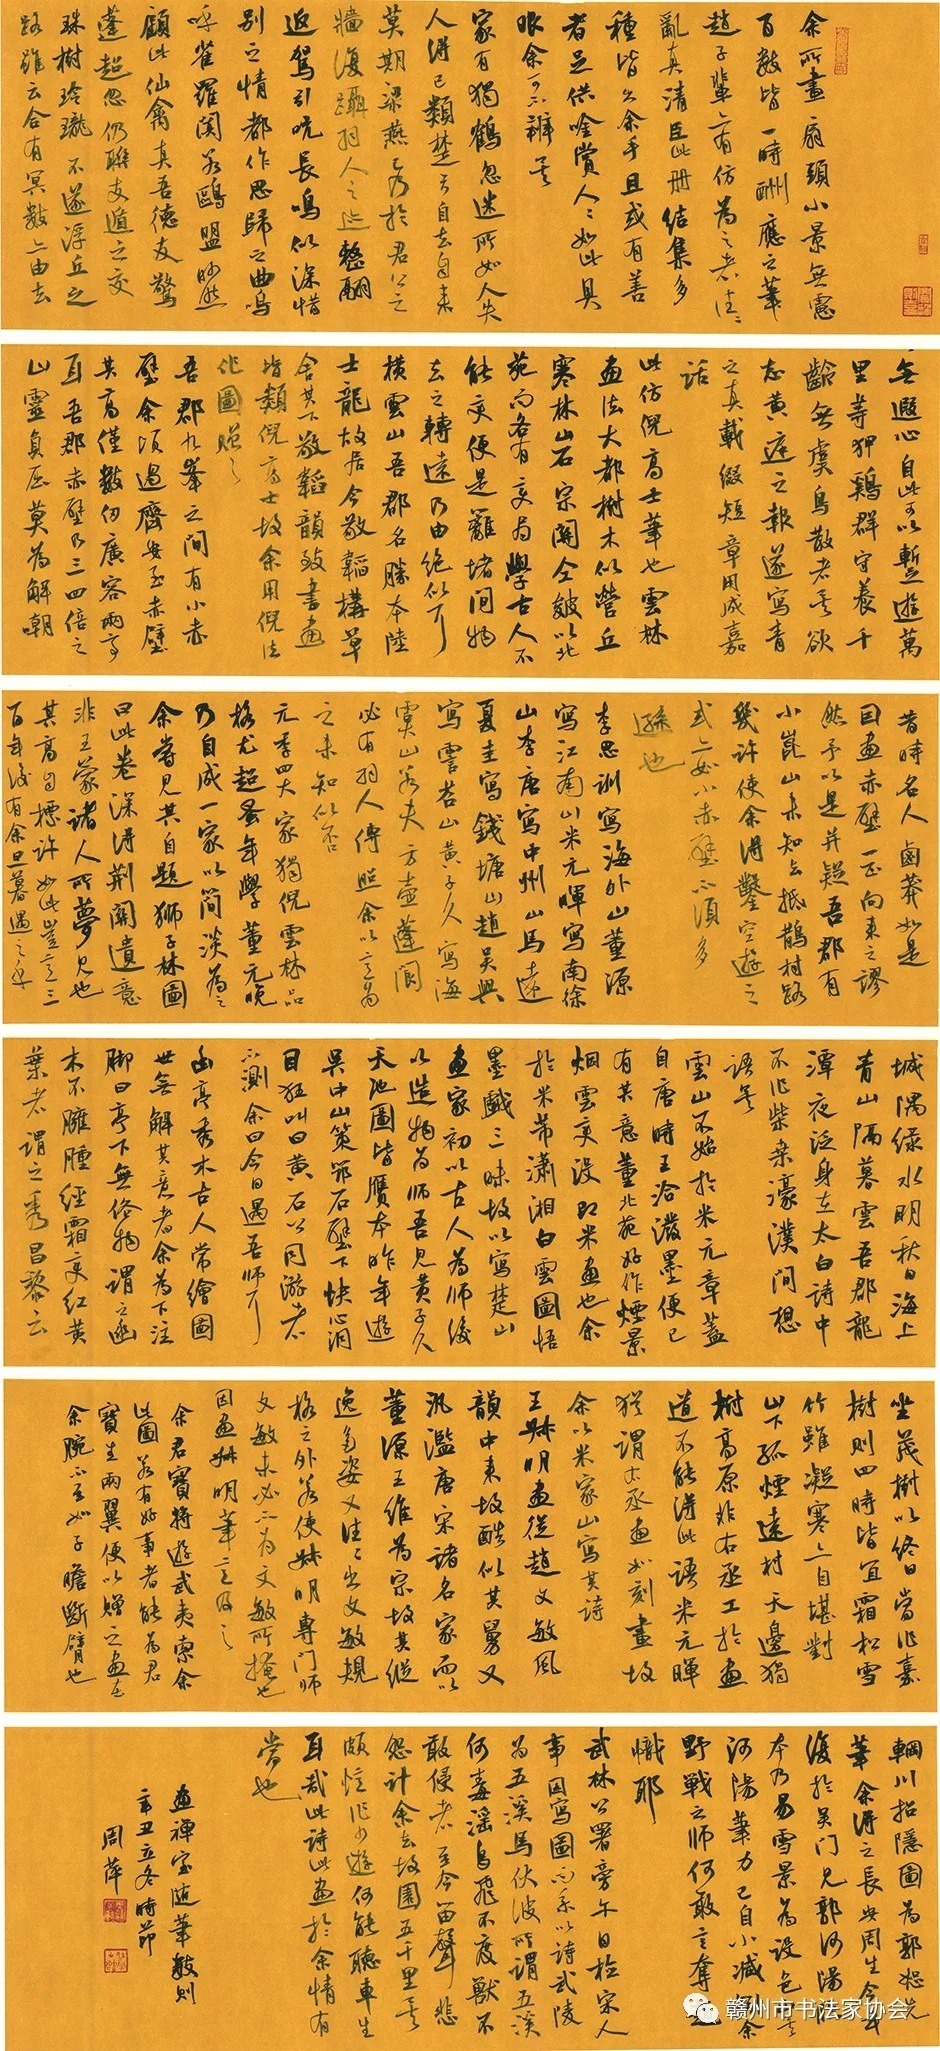 余所畫扇頭小景無慮
百數皆一時酬應之筆
趙子輩亦有仿為之者往往
亂真清臣此冊結集多
種皆出余手且或有善
者足供吟賞人人如此具
眼余可不辨矣
家有獨鶴忽迷所如人失
人得已類楚弓自去自來
莫期梁燕乃於君公之
牆復躡羽人之迹整翮
返駕引吭長鳴似深惜
別之情都作思歸之曲嗚
呼雀羅闃若鷗盟眇然
顧此仙禽真吾德友驚
蓬超忽仍聯支遁之交
珠樹玲瓏不遂浮丘之
路雖云合有冥數亦由去
無遐心自此可以暫遊萬
里等狎鷄群守養千
齡無虞鳥散者矣欲
志黃庭之報遂寫青
之真載綴短章用成嘉
話
此仿倪高士筆也雲林
畫法大都樹木似營丘
寒林山石宗關仝皴似北
苑而各有變局學古人不
能變便是籬堵間物
去之轉遠乃由絕似耳
橫雲山吾郡名勝本陸
士龍故居今敬韜構草
舍其下敬韜韻致書畫
皆類倪高士故余用倪法
作圖贈之
吾郡九峯之間有小赤
壁余頃過齊安至赤壁
其高僅數仞廣容兩亭
耳吾郡赤壁乃三四倍之
山靈負屈莫為解嘲
昔時名人鹵莽如是
因畫赤壁一正向來之謬
然予以是并疑吾郡有
小崑山未知去抵鵲村路
幾許使余得鑿空遊之
或亦如小赤壁不須多
遜也
李思訓寫海外山董源
寫江南山米元暉寫南徐
山李唐寫中州山馬遠
夏圭寫錢塘山趙吳興
寫霅苕山黃子久寫海
虞山若夫方壺蓬閬
必有羽人傳照余以意為
之未知似否
元季四大家獨倪雲林品
格尤超蚤年學董元晚
乃自成一家以簡淡為之
余嘗見其自題獅子林圖
曰此卷深得荊關遺意
非王蒙諸人所夢見也
其高自標許如此豈意三
百年後有余旦暮遇之乎
城隅綠水明秋日海上
青山隔暮雲吾郡龍
潭夜泛身在太白詩中
不作柴桑濠濮間想
語矣
雲山不始於米元章蓋
自唐時王洽潑墨便已
有其意董北苑好作煙景
烟雲變沒即米畫也余
於米芾瀟湘白雲圖悟
墨戲三昧故以寫楚山
畫家初以古人為師後
以造物為師吾見黃子久
天池圖皆贗本昨年遊
吳中山策筇石壁下快心洞
目狂叫曰黃石公同游者
不測余曰今日遇吾師耳
幽亭秀木古人常繪圖
世無解其意者余為下注
腳曰亭下無俗物謂之幽
木不臃腫經霜變紅黃
葉者謂之秀昌黎云
坐茂樹以終日當作嘉
樹則四時皆宜霜松雪
竹雖凝寒亦自堪對
山下孤煙遠村天邊獨
樹高原非右丞工於畫
道不能得此語米元暉
猶謂右丞畫如刻畫故
余以米家山寫其詩
王叔明畫從趙文敏風
韻中來故酷似其舅又
汎濫唐宋諸名家而以
董源王維為宗故其縱
逸多姿又往往出文敏規
格之外若使叔明專門師
文敏未必不為文敏所掩也
因畫叔明筆意及之
余君寶將遊武夷索余
此圖若有好事者能為君
寶生兩翼便以贈之畫在
余腕不至如子瞻斷臂也
輞川招隱圖為郭恕先
筆余得之長安周生今年
復於吳門見郭河陽臨
本乃易雪景為設色
河陽筆力已自小減矧余
野戰之師何敢言奪趙
幟耶
武林公署旁午日檢宋人
事因寫圖而系以詩武陵
為五溪馬伏波所謂五溪
何毒淫鳥飛不度獸不
敢侵者至今笛聲悲
怨計余去故園五千里矣
頗怯作少遊何能聽車生
耳哉此詩此畫於余情有
當也
畫禪室隨筆數則
辛丑立冬時節
周萍
赣州市书法家协会